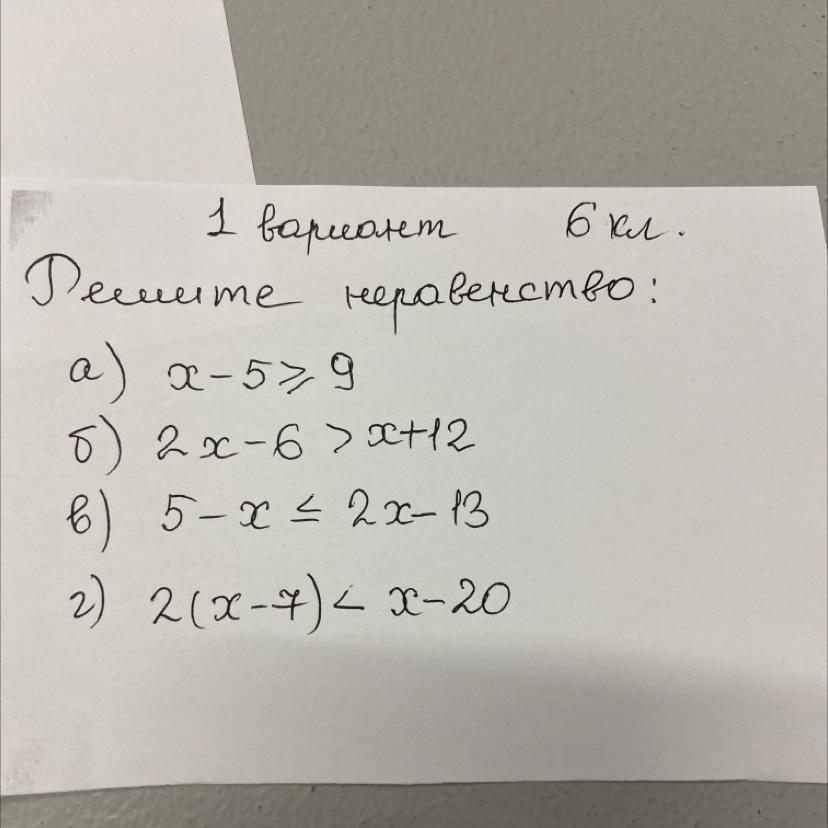 1 вариант 6 кл.
Решите неравенство:
а) x-5⩾9
б) 2x-6>x+12
в) 5-x≤2x-13
г) 2(x-7)<x-20